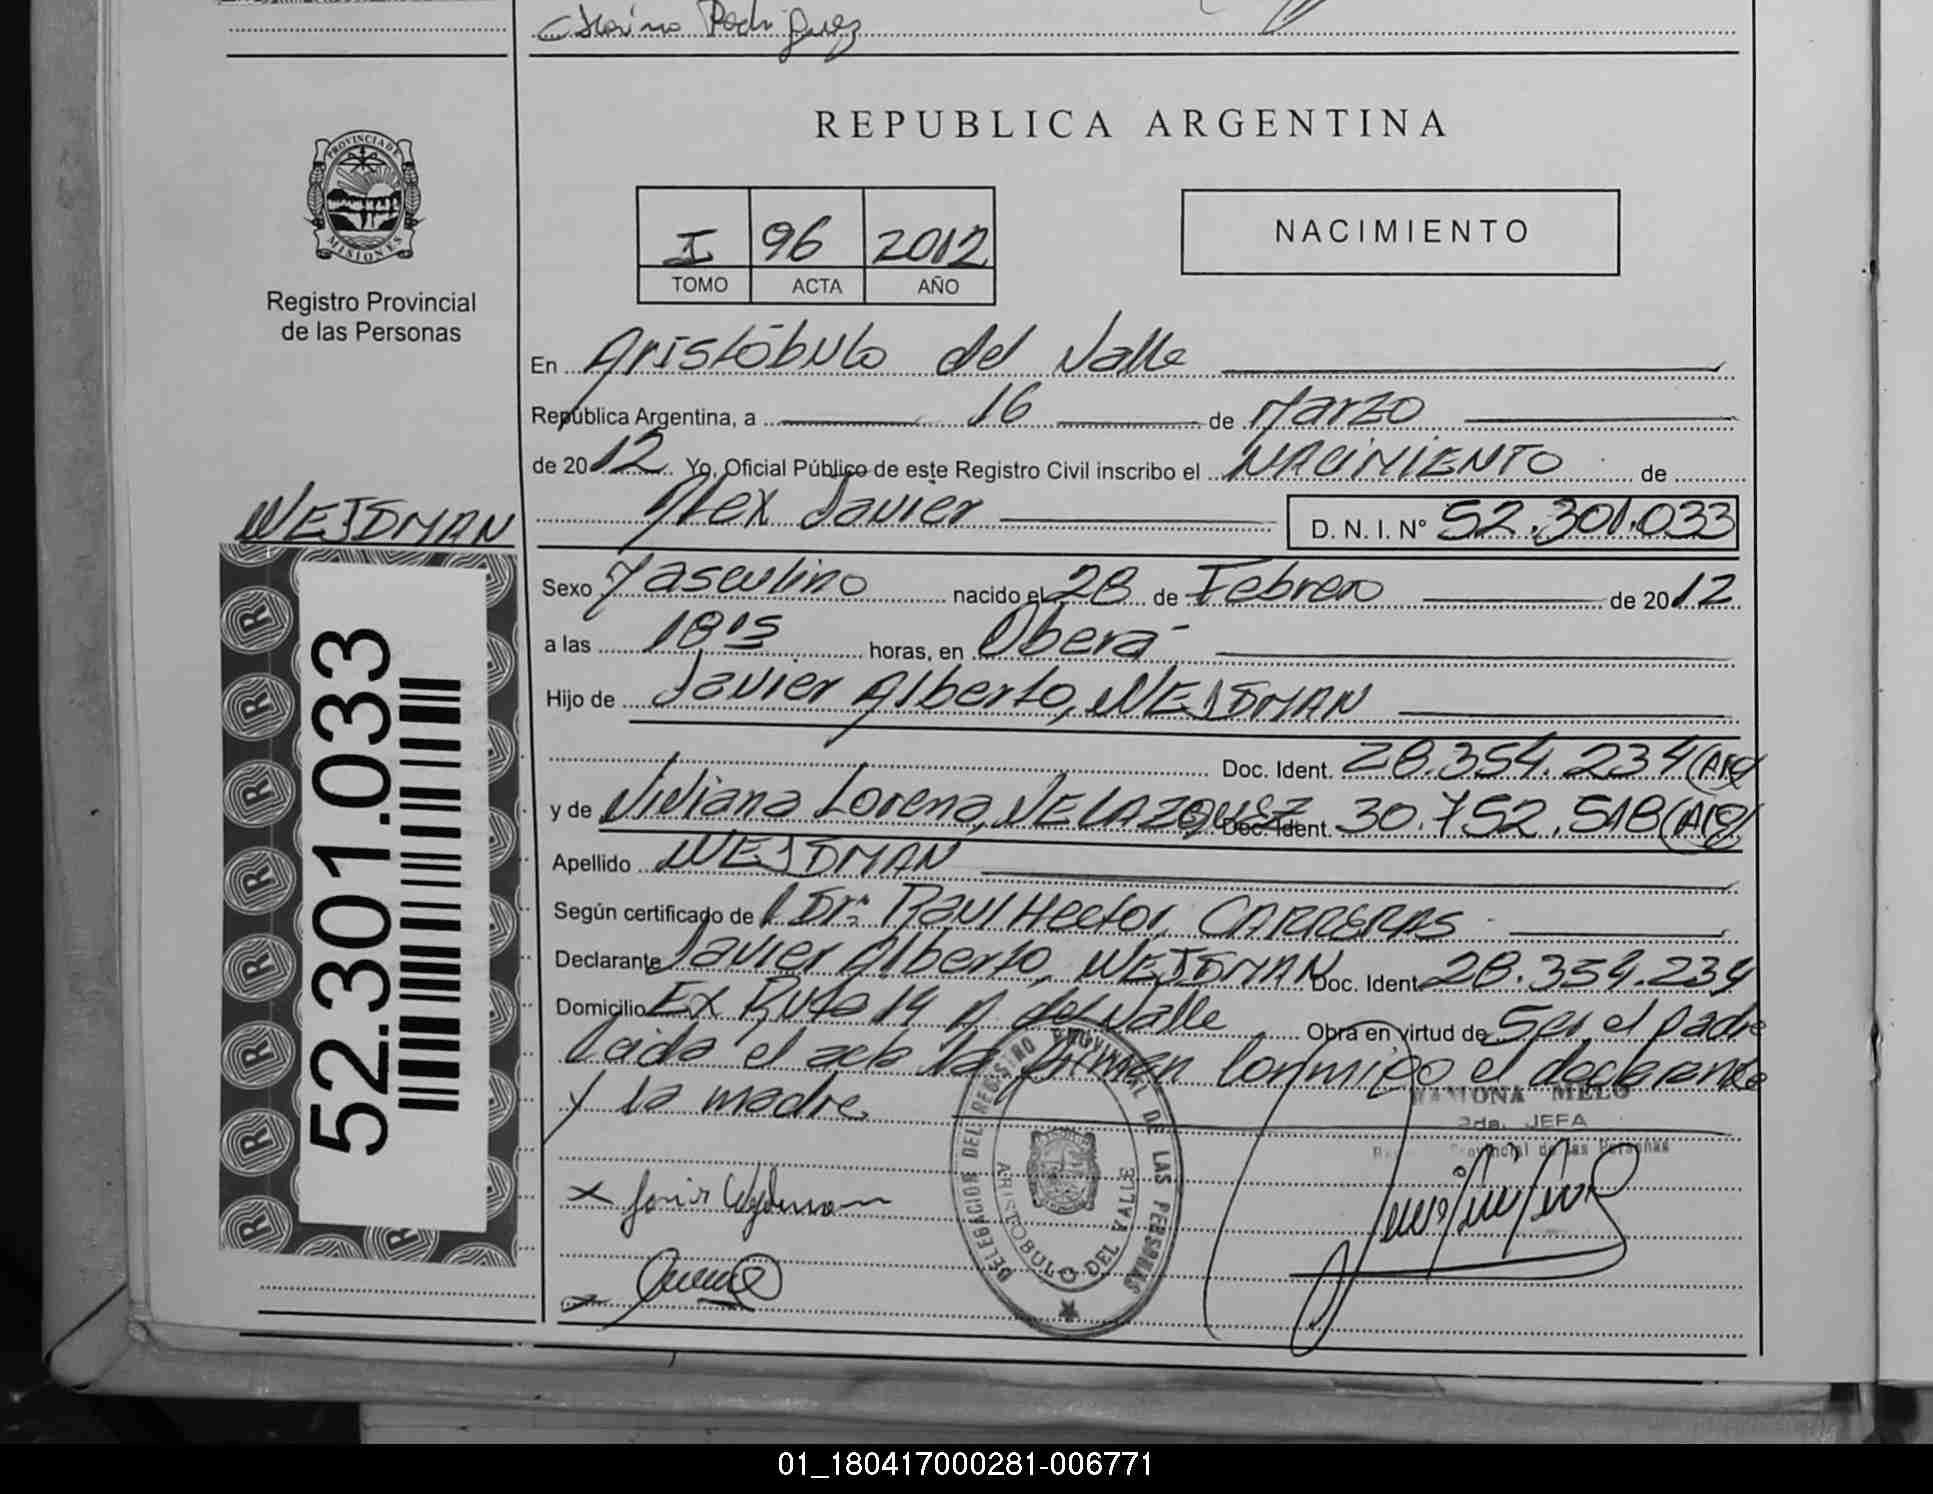 Rodriguez
PROVINCIA DE
MISIONES
Registro Provincial
de las Personas
REPUBLICA ARGENTINA
I 96 2012
TOMO ACTA AÑO
NACIMIENTO
En Aristóbulo del Valle
República Argentina, a 16 de Marzo
de 2012 Yo, Oficial Público de este Registro Civil inscribo el NACIMIENTO de
Alex Javier D. N. I. N° 52.301.033
WEJDMAN
52.301.033
Sexo Masculino nacido el 28 de Febrero de 2012
a las 18:15 horas, en Oberá
Hijo de Javier Alberto, WEJDMAN
Doc. Ident. 28.354.234 (AR)
y de Viviana Lorena, VELAZQUEZ Doc. Ident. 30.752.518 (AR)
Apellido WEJDMAN
Según certificado de Dr. Raul Hector, CARRERAS
Declarante Javier Alberto, WEJDMAN Doc. Ident. 28.354.234
Domicilio Ex Ruta 14 A. del Valle Obra en virtud de Ser el padre
Leida el acta la firman conmigo el declarante
y la madre.
RAMONA MELO
2da. JEFA
Provincial de las Personas
DELEGACION DEL REGISTRO PROVINCIAL DE LAS PERSONAS
ARISTOBULO DEL VALLE
01_180417000281-006771